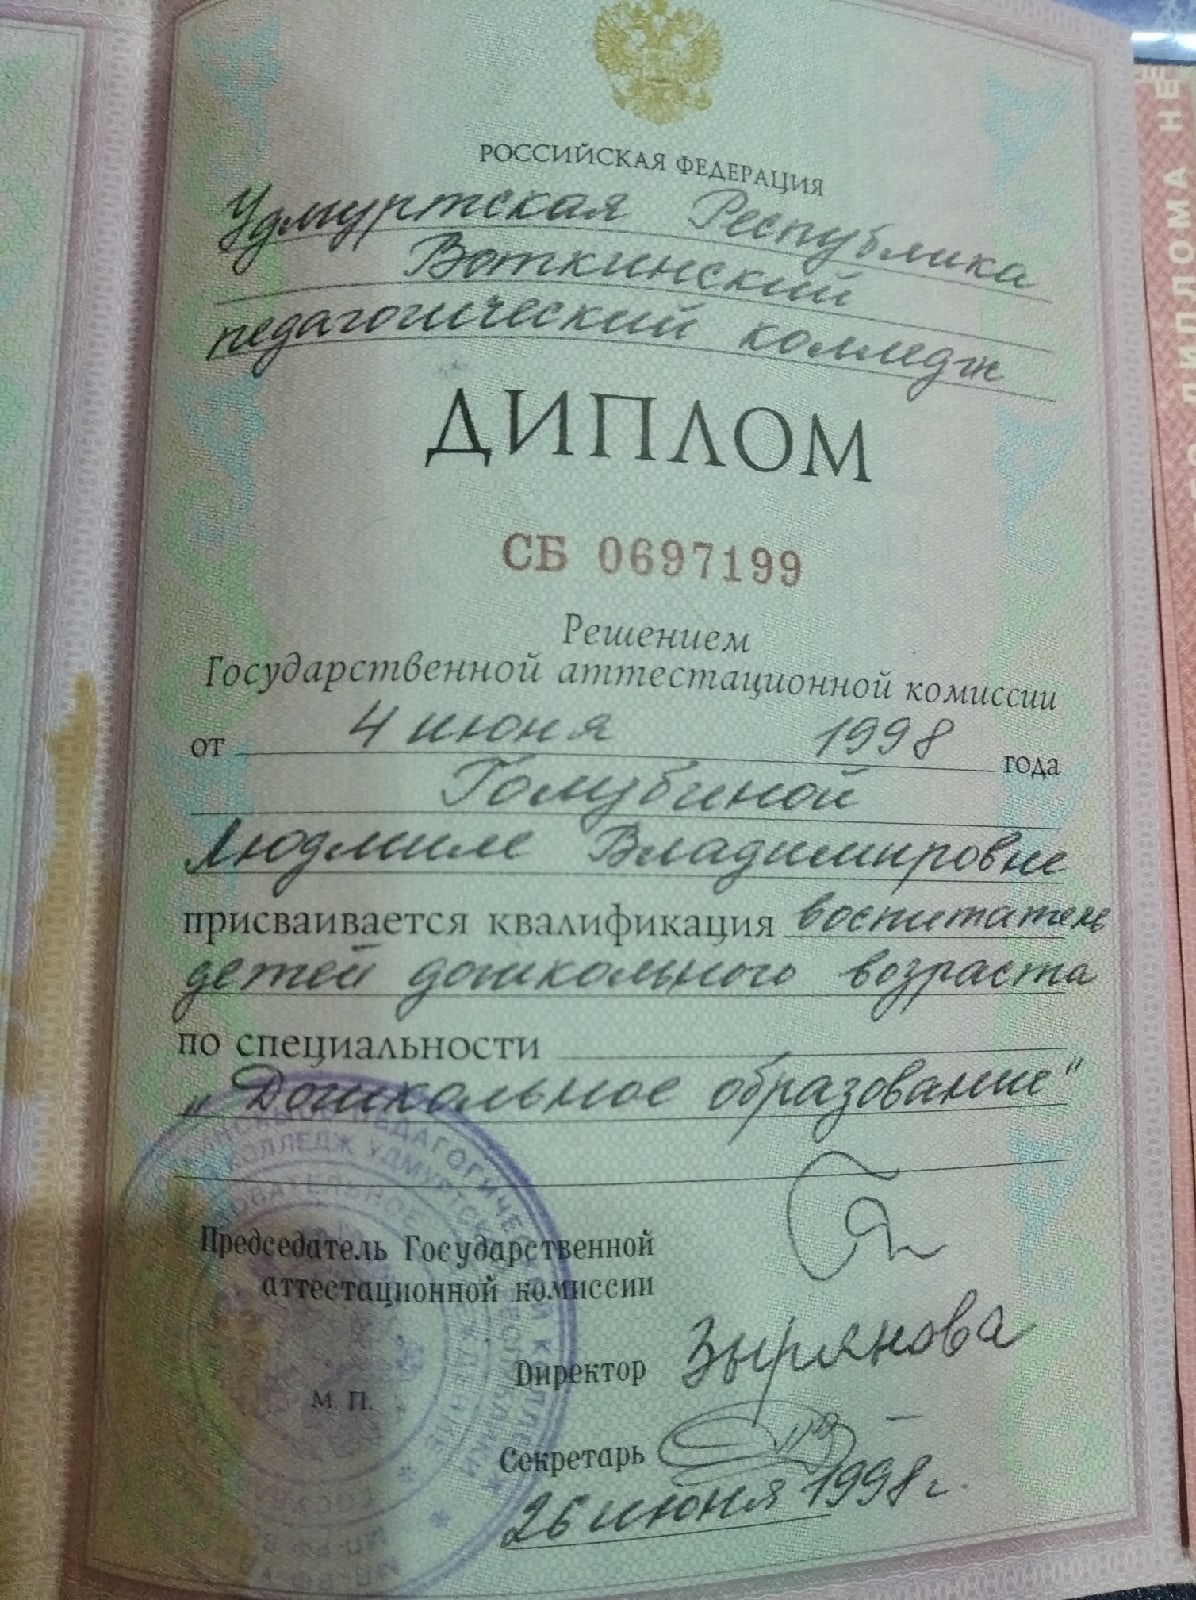 РОССИЙСКАЯ ФЕДЕРАЦИЯ
Удмуртская Республика
Воткинский
педагогический колледж
ДИПЛОМ
СБ 0697199
Решением
Государственной аттестационной комиссии
от 4 июня 1998 года
Голубиной
Людмиле Владимировне
присваивается квалификация воспитатель
детей дошкольного возраста
по специальности
„Дошкольное образование"
Председатель Государственной
аттестационной комиссии
Директор Зырянова
М. П.
Секретарь
26 июня 1998 г.
ПЕДАГОГИЧЕСКИЙ КОЛЛЕДЖ
КОЛЛЕДЖ УДМУРТСКОЙ РЕСПУБЛИКИ
ДИПЛОМА НЕ